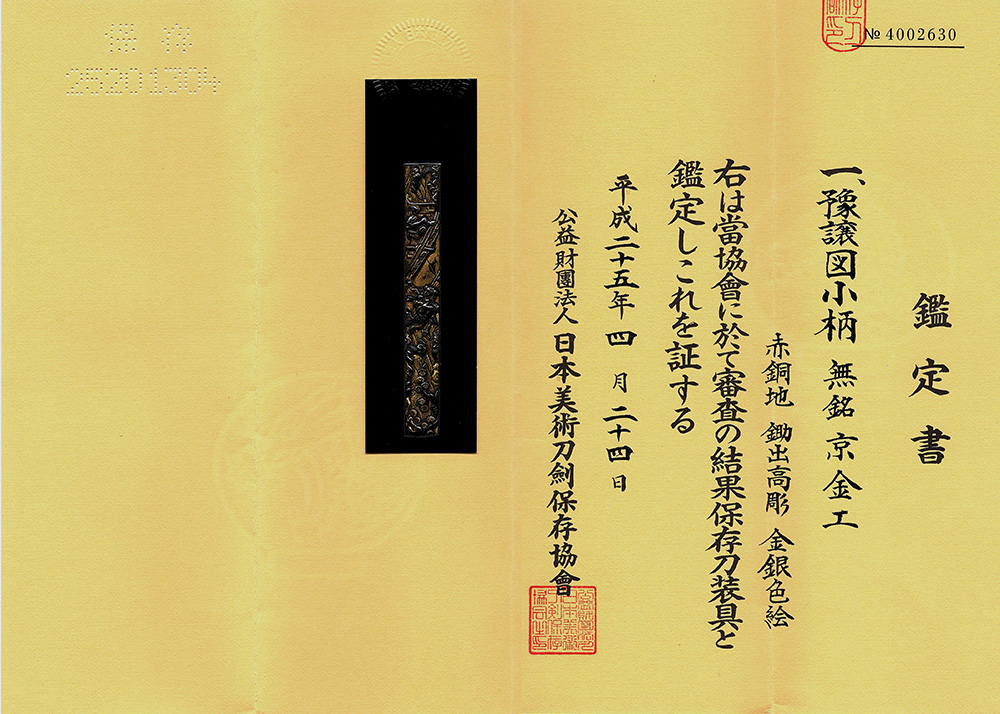 № 4002630
鑑定書
一、豫譲図小柄 無銘 京金工
赤銅地 鋤出高彫 金銀色絵
右は當協會に於て審査の結果保存刀装具と
鑑定しこれを証する
平成二十五年四月二十四日
公益財團法人 日本美術刀劍保存協會
保存
25201304